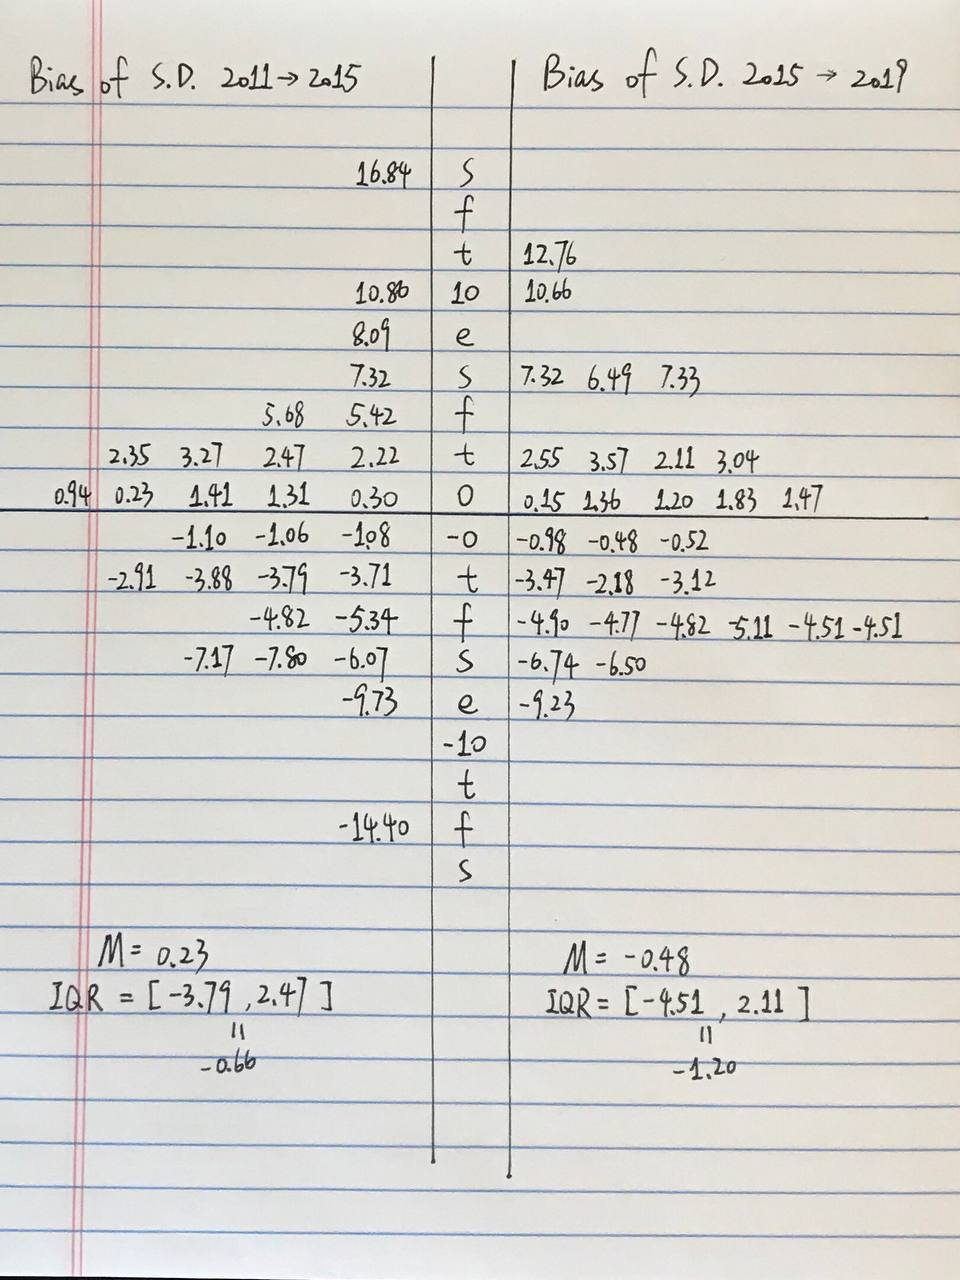 Bias of S.D. 2011→2015 Bias of S.D. 2015→2019
16.84 S
f
t 12.76
10.86 10 10.66
8.09 e
7.32 S 7.32 6.49 7.33
5.68 5.42 f
2.35 3.27 2.47 2.22 t 2.55 3.57 2.11 3.04
0.94 0.23 1.41 1.31 0.30 0 0.15 1.36 1.20 1.83 1.47
-1.10 -1.06 -1.08 -0 -0.98 -0.48 -0.52
-2.91 -3.88 -3.79 -3.71 t -3.47 -2.18 -3.12
-4.82 -5.34 f -4.90 -4.77 -4.82 -5.11 -4.51 -4.51
-7.17 -7.80 -6.07 S -6.74 -6.50
-9.73 e -9.23
-10
t
-14.40 f
S
M = 0.23 M = -0.48
IQR = [-3.79, 2.47] IQR = [-4.51, 2.11]
= =
-0.66 -1.20